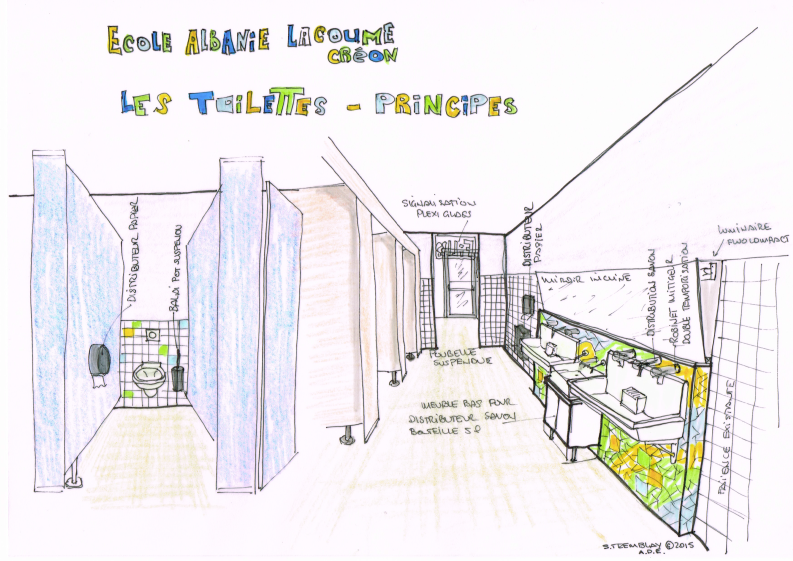 ECOLE ALBANIE LACOUME
CRÉON
LES TOILETTES - PRINCIPES
SIGNALISATION
PLEXI GLASS
DISTRIBUTEUR PAPIER
BALAI POT SUSPENDU
DISTRIBUTEUR
PAPIER
LUMINAIRE
FLUOCOMPACT
MIROIR INCLINÉ
DISTRIBUTION SAVON
ROBINET MITIGEUR
DOUBLE TEMPORISATION
POUBELLE
SUSPENDUE
MEUBLE BAS POUR
DISTRIBUTEUR SAVON
BOUTEILLE 5 l
FAÏENCE EXISTANTE
S.TREMBLAY © 2015
A.D.E.